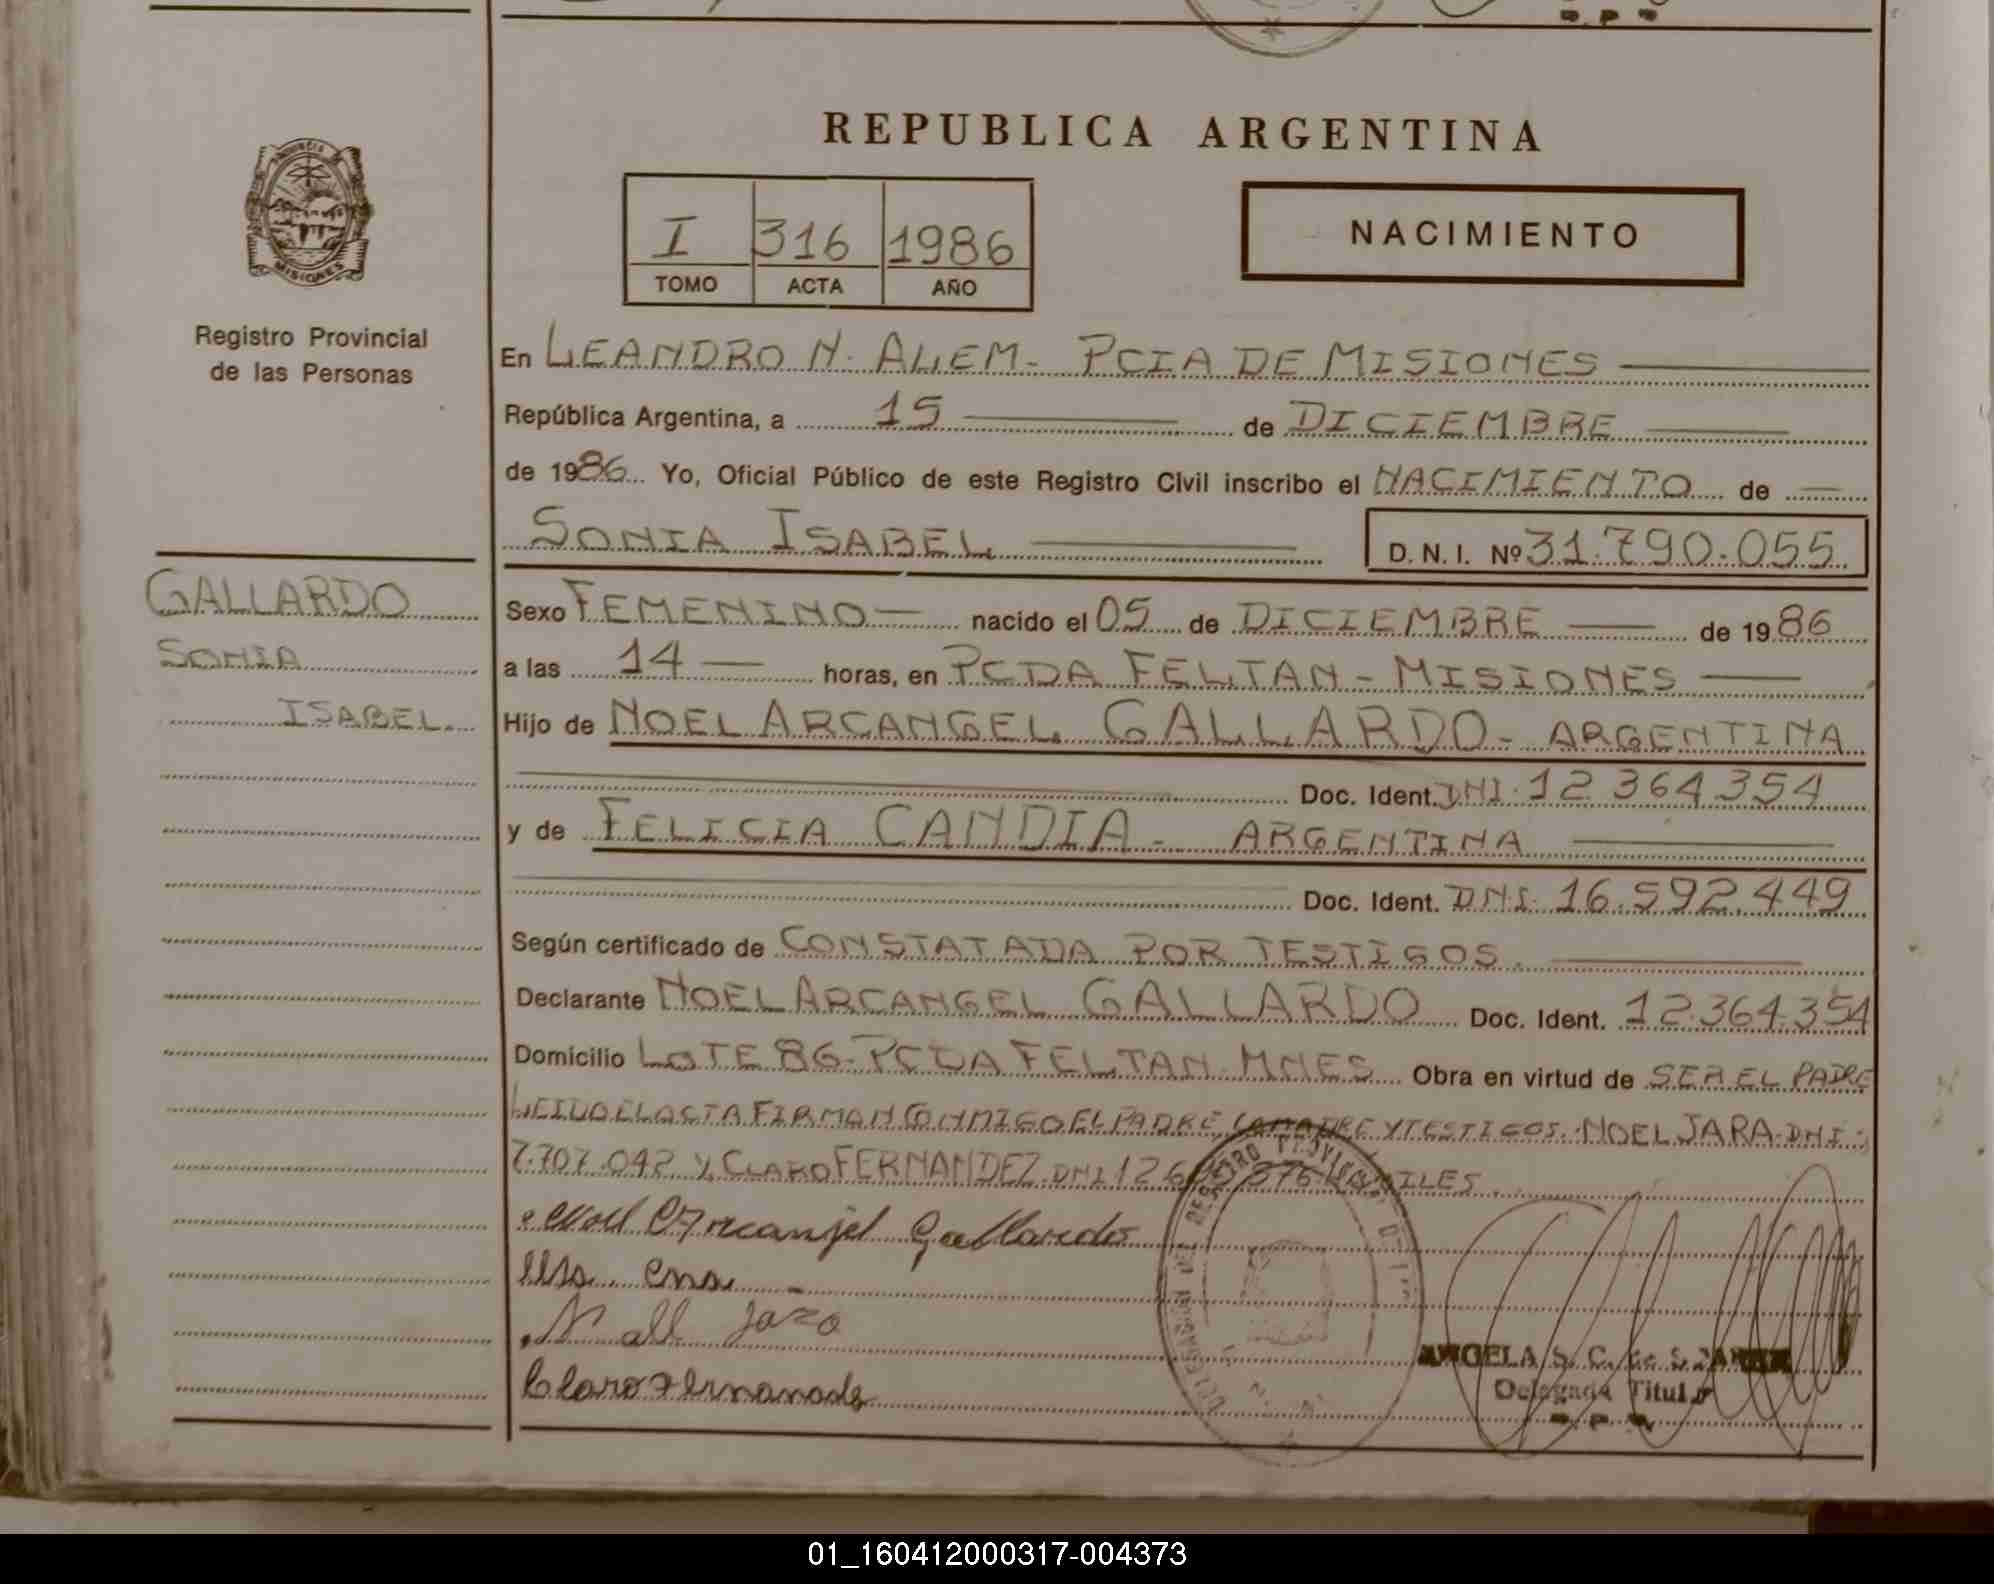 REPUBLICA ARGENTINA
PROVINCIA DE
MISIONES
I 316 1986
TOMO ACTA AÑO
NACIMIENTO
Registro Provincial
de las Personas
En LEANDRO N. ALEM - PCIA DE MISIONES
República Argentina, a 15 de DICIEMBRE
de 1986 Yo, Oficial Público de este Registro Civil inscribo el NACIMIENTO de
SONIA ISABEL D.N.I. Nº 31.790.055
GALLARDO
SONIA
ISABEL.
Sexo FEMENINO nacido el 05 de DICIEMBRE de 1986
a las 14 horas, en PCDA FELTAN - MISIONES
Hijo de NOEL ARCANGEL GALLARDO - ARGENTINA
Doc. Ident. DNI. 12 364 354
y de FELICIA CANDIA - ARGENTINA
Doc. Ident. DNI. 16.592.449
Según certificado de CONSTATADA POR TESTIGOS.
Declarante NOEL ARCANGEL GALLARDO Doc. Ident. 12.364.354
Domicilio LOTE 86 - PCDA FELTAN - MNES Obra en virtud de SER EL PADRE
LEIDA EL ACTA FIRMAN CONMIGO EL PADRE, LA MADRE Y TESTIGOS. NOEL JARA. DNI:
7.707.042 Y CLARO FERNANDEZ. DNI 12 376 HABILES.
Noel Arcanjel Gallardo
Jaro
Claro Fernande
ANGELA S. C. de
Delegada Titular
01_160412000317-004373